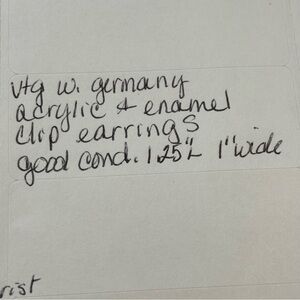 vtg w. germany
acrylic & enamel
clip earrings
good cond. 1.25"L 1" wide
rist